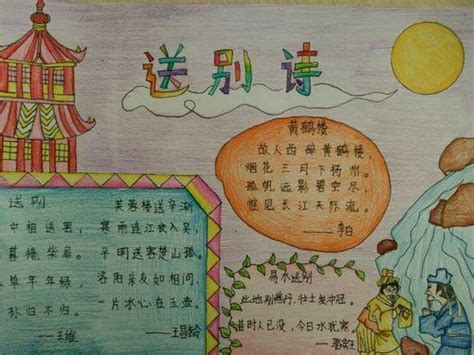 送别诗
黄鹤楼
故人西辞黄鹤楼,
烟花三月下扬州.
孤帆远影碧空尽,
惟见长江天际流.
——李白
送别
中相送罢,
暮掩柴扉.
草年年绿,
归不归.
——王维
芙蓉楼送辛渐
寒雨连江夜入吴,
平明送客楚山孤.
洛阳亲友如相问,
一片冰心在玉壶.
——王昌龄
易水送别
此地别燕丹,壮士发冲冠.
昔时人已没,今日水犹寒.
——骆宾王